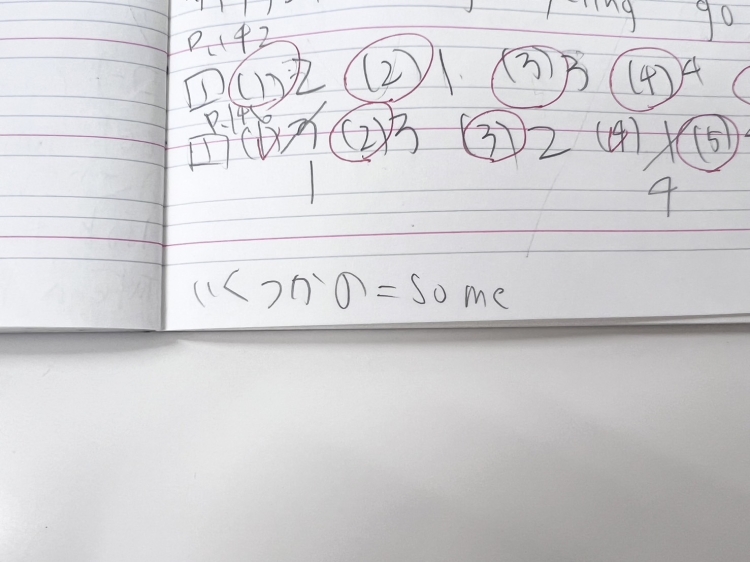 go
P.142
1 (1) 2 (2) 1 (3) 3 (4) 4
1 (1) (2) 3 (3) 2 (4) 1 (5)
1 4
いくつかの = some